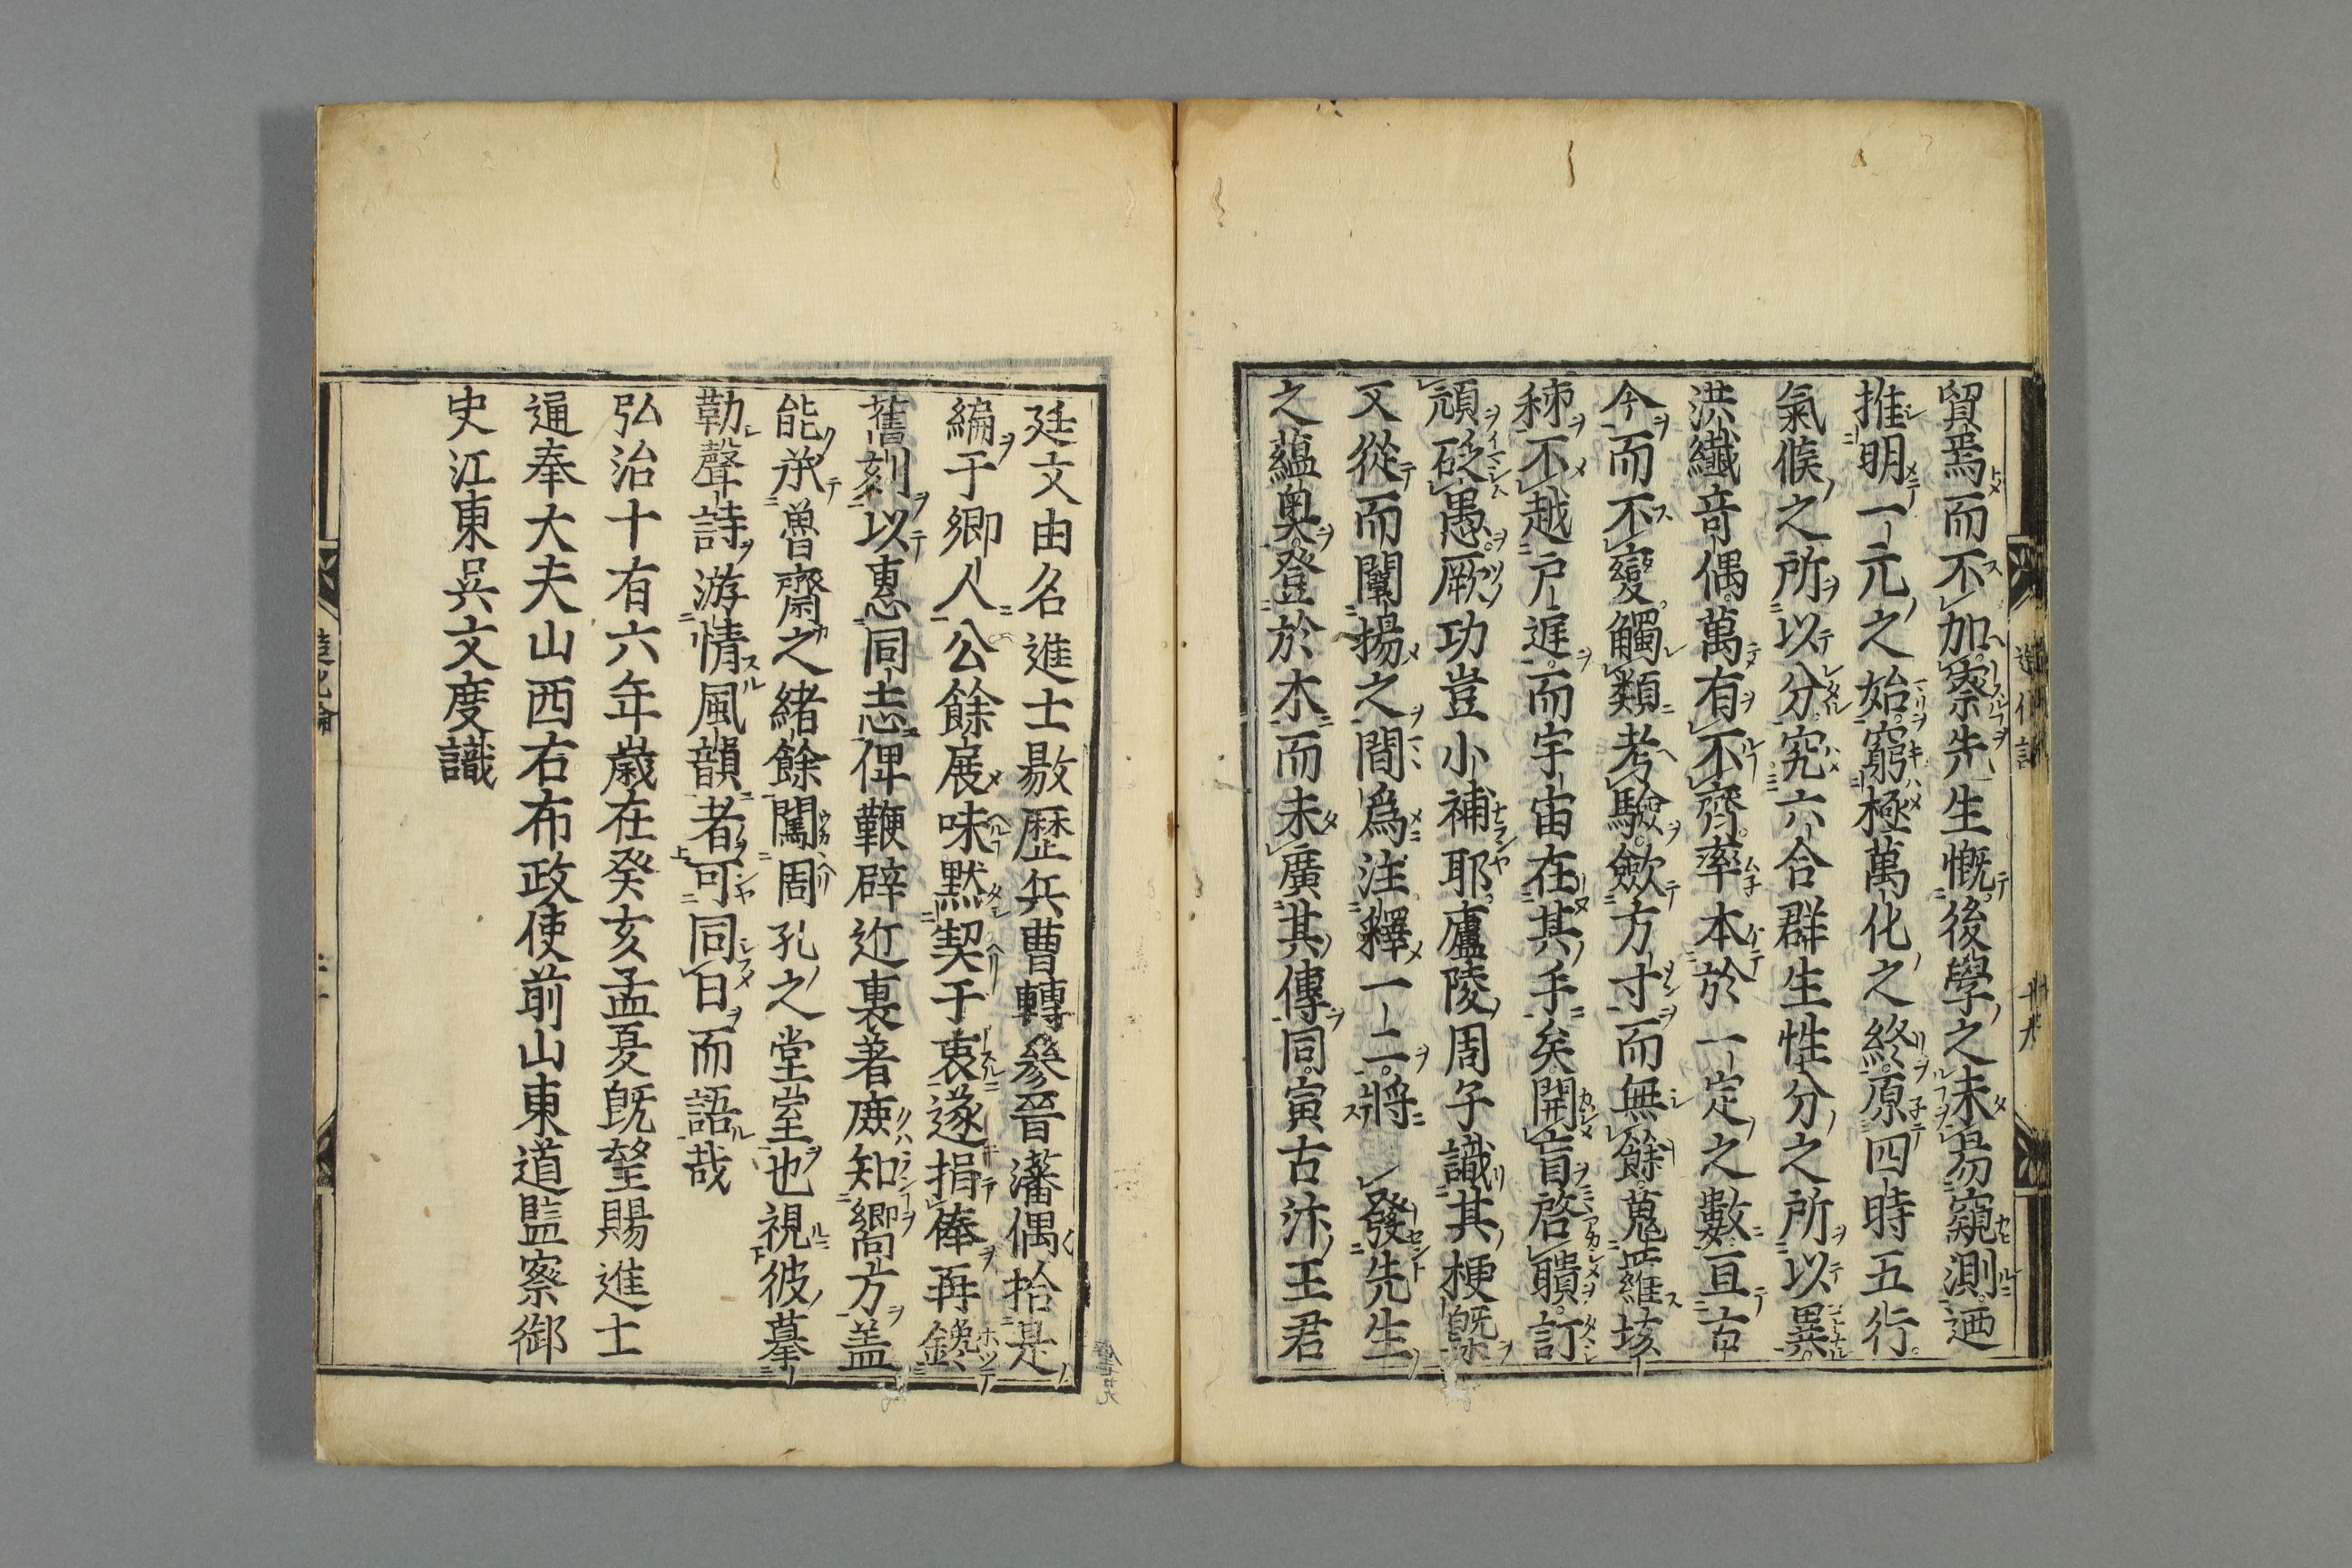 貿焉而不加察先生慨後學之未易窺測廼
推明一元之始窮極萬化之終原四時五行
氣候之所以分究六合群生性分之所以異
洪纖竒偶萬有不齊率本於一定之數亘古
今而不變觸類考驗歛方寸而無餘蒐羅垓
秭不越戸庭而宇宙在其手矣開盲啓聵訂
頑砭愚厥功豈小補耶廬陵周子識其梗槩
又從而闡揚之間爲注釋一二將發先生
之蘊奥登於木而未廣其傳同寅古汴王君
廷文由名進士敭歴兵曹轉參晉藩偶拾是
編于鄉人公餘展味默契于衷遂捐俸再鋟
舊刻以惠同志俾鞭辟近裏著庶知嚮方盖
能泝魯齋之緒餘闖周孔之堂室也視彼摹
勒聲詩游情風韻者可同日而語哉
弘治十有六年歳在癸亥孟夏旣望賜進士
通奉大夫山西右布政使前山東道監察御
史江東吳文度識